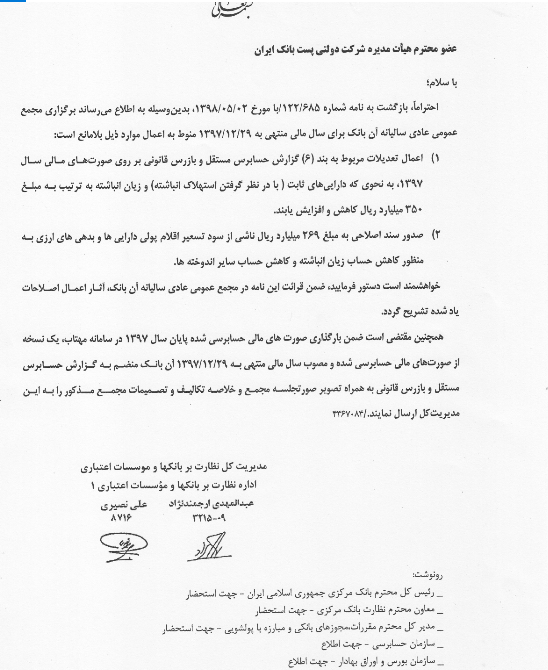 بسمه تعالی
عضو محترم هیأت مدیره شرکت دولتی پست بانک ایران
با سلام؛
احتراماً، بازگشت به نامه شماره ۱۲۲/۶۸۵/با مورخ ۱۳۹۸/۰۵/۰۲، بدین‌وسیله به اطلاع می‌رساند برگزاری مجمع
عمومی عادی سالیانه آن بانک برای سال مالی منتهی به ۱۳۹۷/۱۲/۲۹ منوط به اعمال موارد ذیل بلامانع است:
۱) اعمال تعدیلات مربوط به بند (۶) گزارش حسابرس مستقل و بازرس قانونی بر روی صورت‌های مالی سال
۱۳۹۷، به نحوی که دارایی‌های ثابت ( با در نظر گرفتن استهلاک انباشته) و زیان انباشته به ترتیب به مبلغ
۳۵۰ میلیارد ریال کاهش و افزایش یابند.
۲) صدور سند اصلاحی به مبلغ ۲۶۹ میلیارد ریال ناشی از سود تسعیر اقلام پولی دارایی ها و بدهی های ارزی به
منظور کاهش حساب زیان انباشته و کاهش حساب سایر اندوخته ها.
خواهشمند است دستور فرمایید، ضمن قرائت این نامه در مجمع عمومی عادی سالیانه آن بانک، آثار اعمال اصلاحات
یاد شده تشریح گردد.
همچنین مقتضی است ضمن بارگذاری صورت های مالی حسابرسی شده پایان سال ۱۳۹۷ در سامانه مهتاب، یک نسخه
از صورت‌های مالی حسابرسی شده و مصوب سال مالی منتهی به ۱۳۹۷/۱۲/۲۹ آن بانک منضم به گزارش حسابرس
مستقل و بازرس قانونی به همراه تصویر صورتجلسه مجمع و خلاصه تکالیف و تصمیمات مجمع مذکور را به این
مدیریت‌کل ارسال نمایند./۴۳۶۷۰۸۳
مدیریت کل نظارت بر بانکها و موسسات اعتباری
اداره نظارت بر بانکها و مؤسسات اعتباری ۱
عبدالمهدی ارجمندنژاد علی نصیری
۳۲۱۵-۰۹ ۸۷۱۶
رونوشت:
_ رئیس کل محترم بانک مرکزی جمهوری اسلامی ایران - جهت استحضار
_ معاون محترم نظارت بانک مرکزی - جهت استحضار
_ مدیر کل محترم مقررات،مجوزهای بانکی و مبارزه با پولشویی - جهت استحضار
_ سازمان حسابرسی - جهت اطلاع
_ سازمان بورس و اوراق بهادار - جهت اطلاع